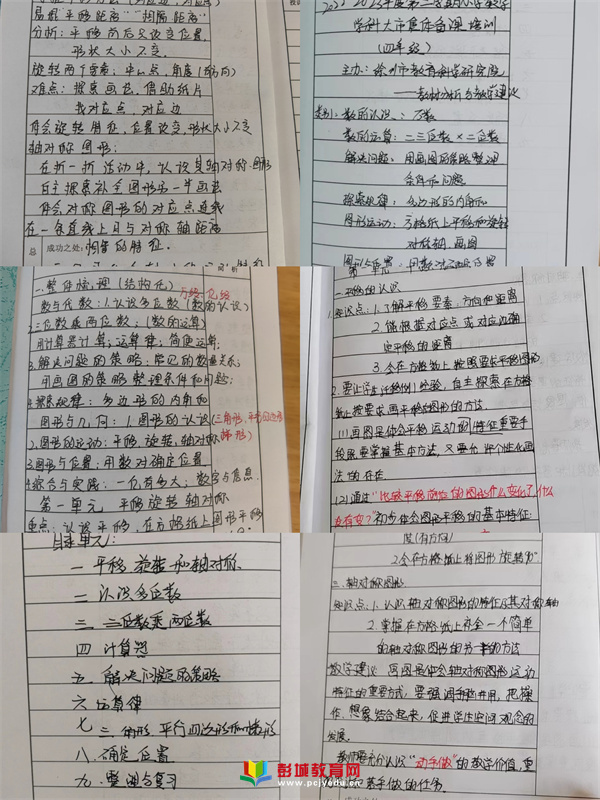 易混"平移距离""相隔距离"
分析：平移前后只改变位置，
形状大小不变，
旋转两个要素：中心点，角度(方向)
难点：探索画包，借助纸片
找对应点，对应边
体会旋转特征，位置改变，形状大小不变
轴对称图形：
在折一折活动中，认识其轴对称图形
自主探索补全图形另一半画法
体会对称图形的对应点连线
在一条直线上且与对称轴距离
总 成功之处：相等的特征.
学科大市集体备课培训
(四年级)
主办：徐州市教育科学研究院
——教材分析与教学建议
数的认识：万数
数的运算：二三位数×二位数
解决问题：用画图的策略整理
条件和问题
探索规律：多边形的内角和
图形运动：方格纸上平移和旋转
对称轴，画图
图形与位置：用数对确定位置
一.整体梳理(结构化) 万级 亿级
数与代数：1.认识多位数(数的认识)
2.三位数乘两位数；(数的运算)
用计算器计算；运算律；简便运算；
3.解决问题的策略：常见的数量关系；
用画图的策略整理条件和问题；
4.探索规律：多边形的内角和
图形与几何：1.图形的认识(三角形，平行四边形
2.图形的运动：平移，旋转，轴对称 梯形)
3.图形与位置：用数对确定位置
4.综合与实践：一亿有多大；数字与信息
第一单元 平移旋转轴对称
重点：认识平移，在方格纸上图形平移
第一单元
一.平移的认识
知识点：1.了解平移要素：方向和距离
2.能根据对应点或对应边确
定平移的距离
3.会在方格纸上按照要求平移图形
2.要让学生迁移例1经验，自主探索在方格
纸上按要求画平移后图形的方法.
(1)画图是体会平移运动图特征重要手
段既要掌握基本方法，又要允许个性化画
法的存在.
(2)通过"比较平移前后的图形什么变了什么
没有变?"初步体会图形平移的基本特征.
目录单元：
一 平移 旋转和轴对称
二 认识多位数
三 三位数乘两位数
四 计算器
五 解决问题的策略
六 运算律
七 三角形 平行四边形和梯形
八 确定位置
九 整理与复习
度(有方向)
2.会在方格纸上将图形旋转90°
三.轴对称图形
知识点：1.认识轴对称图形的特征及其对称轴
2.掌握在方格纸上补全一个简单
的轴对称图形的另一半的方法
教学建议 画图是体会轴对称图形运动
特征的重要方式，要强调手脑并用，把操
作、想象结合起来，促进学生空间观念的
发展.
教师要充分认识"动手做"的教学价值，重
基手做的任务
彭城教育网
www.pcjyzd.com